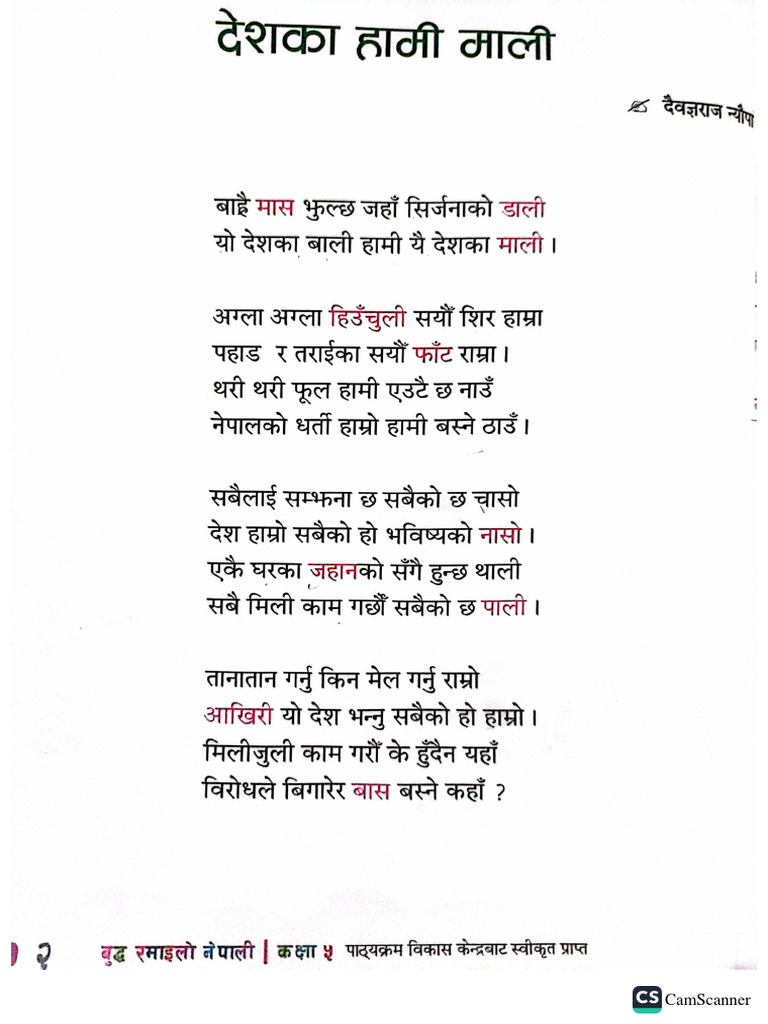 देशका हामी माली
दैवज्ञराज न्यौपा
बाह्रै मास झुल्छ जहाँ सिर्जनाको डाली
यो देशका बाली हामी यै देशका माली ।
अग्ला अग्ला हिउँचुली सयौँ शिर हाम्रा
पहाड र तराईका सयौँ फाँट राम्रा ।
थरी थरी फूल हामी एउटै छ नाउँ
नेपालको धर्ती हाम्रो हामी बस्ने ठाउँ ।
सबैलाई सम्झना छ सबैको छ चासो
देश हाम्रो सबैको हो भविष्यको नासो ।
एकै घरका जहानको सँगै हुन्छ थाली
सबै मिली काम गर्छौँ सबैको छ पाली ।
तानातान गर्नु किन मेल गर्नु राम्रो
आखिरी यो देश भन्नु सबैको हो हाम्रो ।
मिलीजुली काम गरौँ के हुँदैन यहाँ
विरोधले बिगारेर बास बस्ने कहाँ ?
२ बुद्ध रमाइलो नेपाली | कक्षा ५ पाठ्यक्रम विकास केन्द्रबाट स्वीकृत प्राप्त
CS CamScanner